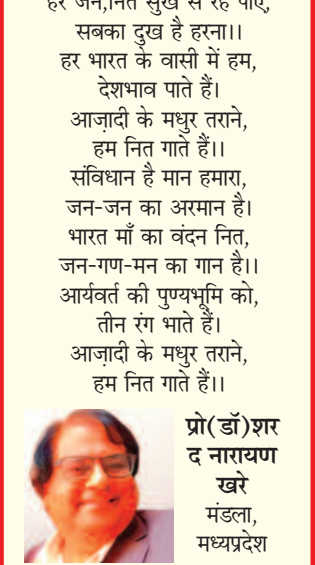 हर जन,नित सुख से रह पाए,
सबका दुख है हरना।।
हर भारत के वासी में हम,
देशभाव पाते हैं।
आज़ादी के मधुर तराने,
हम नित गाते हैं।।
संविधान है मान हमारा,
जन-जन का अरमान है।
भारत माँ का वंदन नित,
जन-गण-मन का गान है।।
आर्यवर्त की पुण्यभूमि को,
तीन रंग भाते हैं।
आज़ादी के मधुर तराने,
हम नित गाते हैं।।
प्रो(डॉ)शर
द नारायण
खरे
मंडला,
मध्यप्रदेश